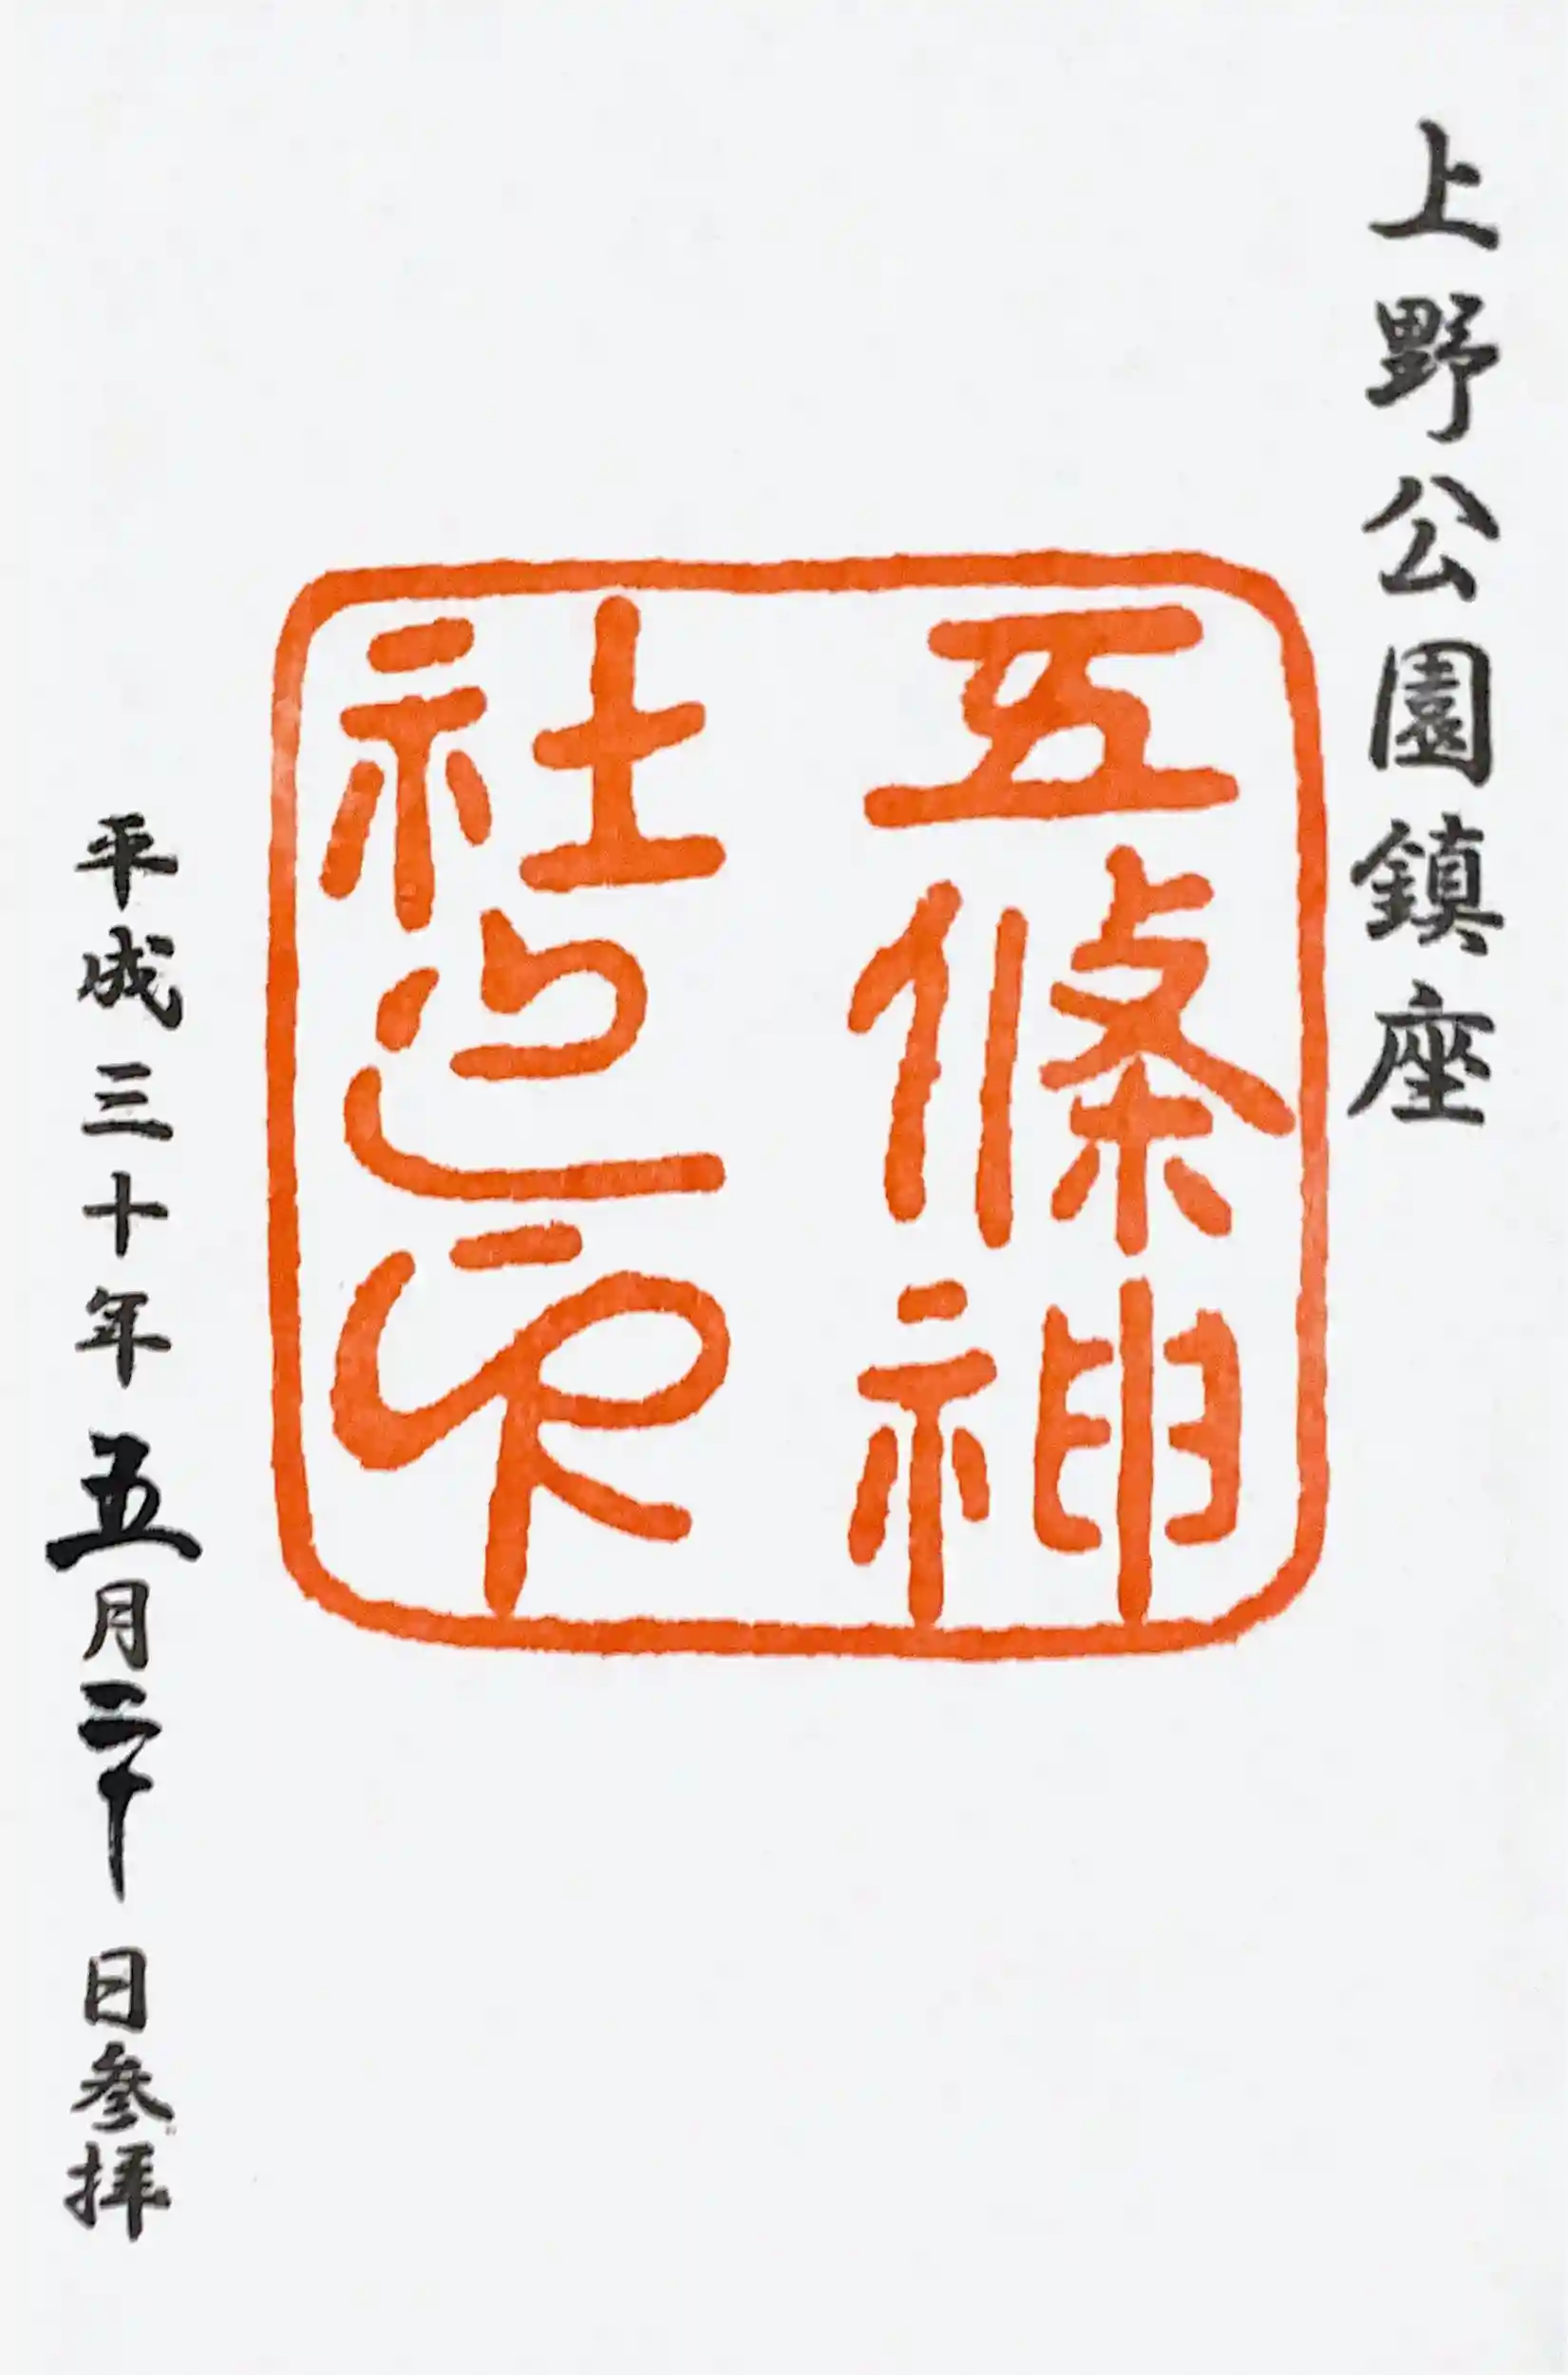 上野公園鎮座
五條神
社之印
平成三十年五月二十日参拝